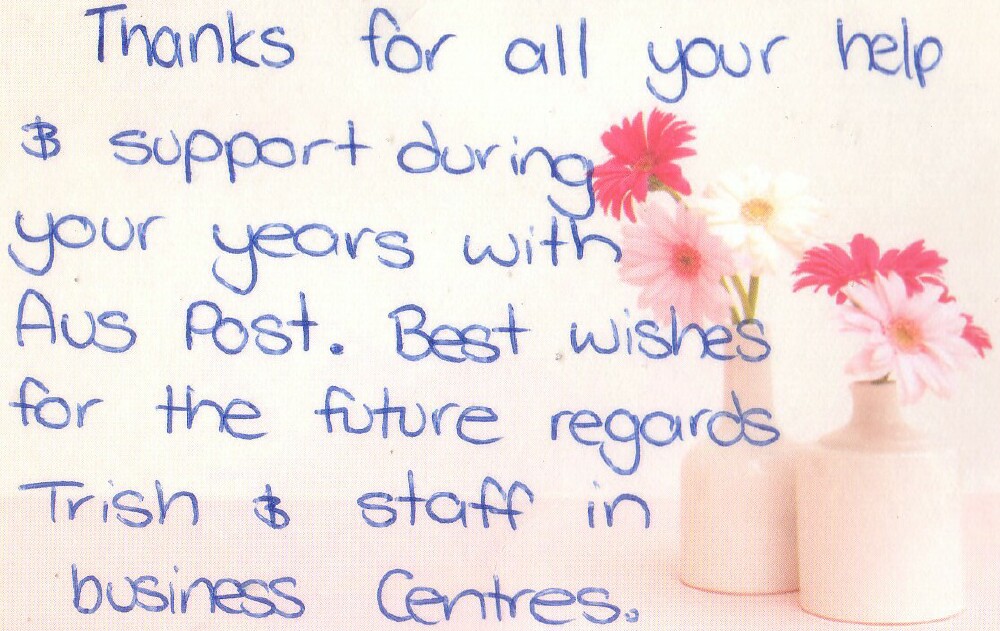 Thanks for all your help
& support during
your years with
Aus Post. Best wishes
for the future regards
Trish & staff in
business Centres.